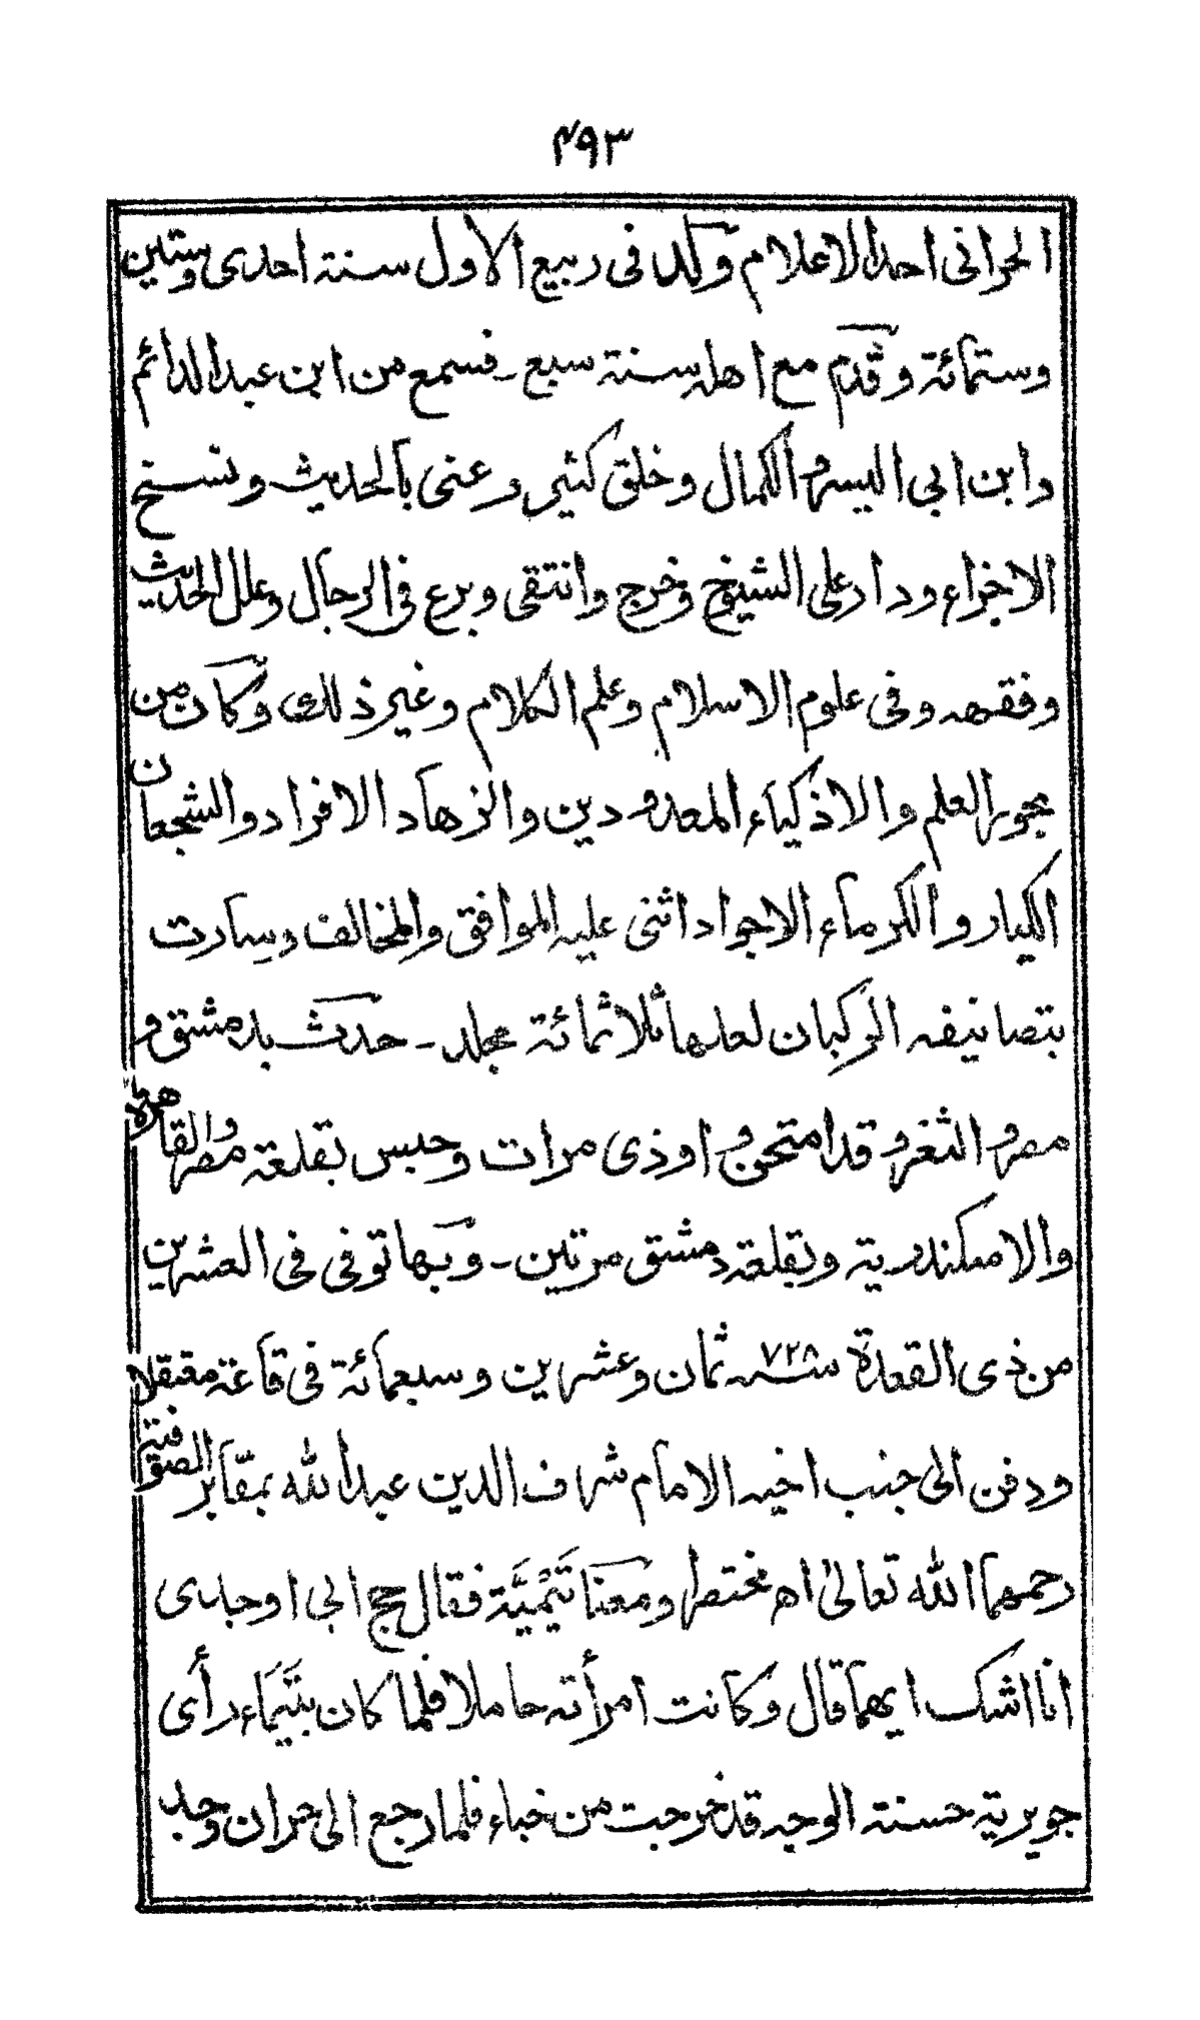 ۴۹۳
الحرانی احد الاعلام وُلد فی ربیع الاول سنة احدی وستین
وستمائة وقُدم مع اهله سنة سبع ـ فسمع من ابن عبد الدائم
وابن ابی الیسر والکمال وخلق کثیر وعنی بالحدیث ونسخ
الاجزاء ودار علی الشیوخ وخرج وانتقی وبرع فی الرجال وعلل الحدیث
وفقهه وفی علوم الاسلام وعلم الکلام وغیر ذلك وکان من
بحور العلم والاذکیاء المعدودین والزهاد الافراد والشجعان
الکبار والکرماء الاجواد اثنی علیه الموافق والمخالف وسارت
بتصانیفه الرکبان لعلها ثلاثمائة مجلد ـ حدث بدمشق و
مصر والثغر وقد امتحن واوذی مرات وحبس بقلعة مصر والقاهرة
والاسکندریة وبقلعة دمشق مرتین ـ وبها توفی فی العشرین
من ذی القعدة سنه ۷۲۸ ثمان وعشرین وسبعمائة فی قاعة معتقلا
ودفن الی جنب اخیه الامام شرف الدین عبد الله بمقابر الصوفیة
رحمهما الله تعالیٰ اھ مختصرا ومعنا تَیْمِیَّة فقال حج ابی اوجدی
انا اشك ایهما قال وکانت امرأته حاملا فلما کان بتَیْمَاء رأی
جویریة حسنة الوجه قد خرجت من خباء فلما رجع الی حران وجد